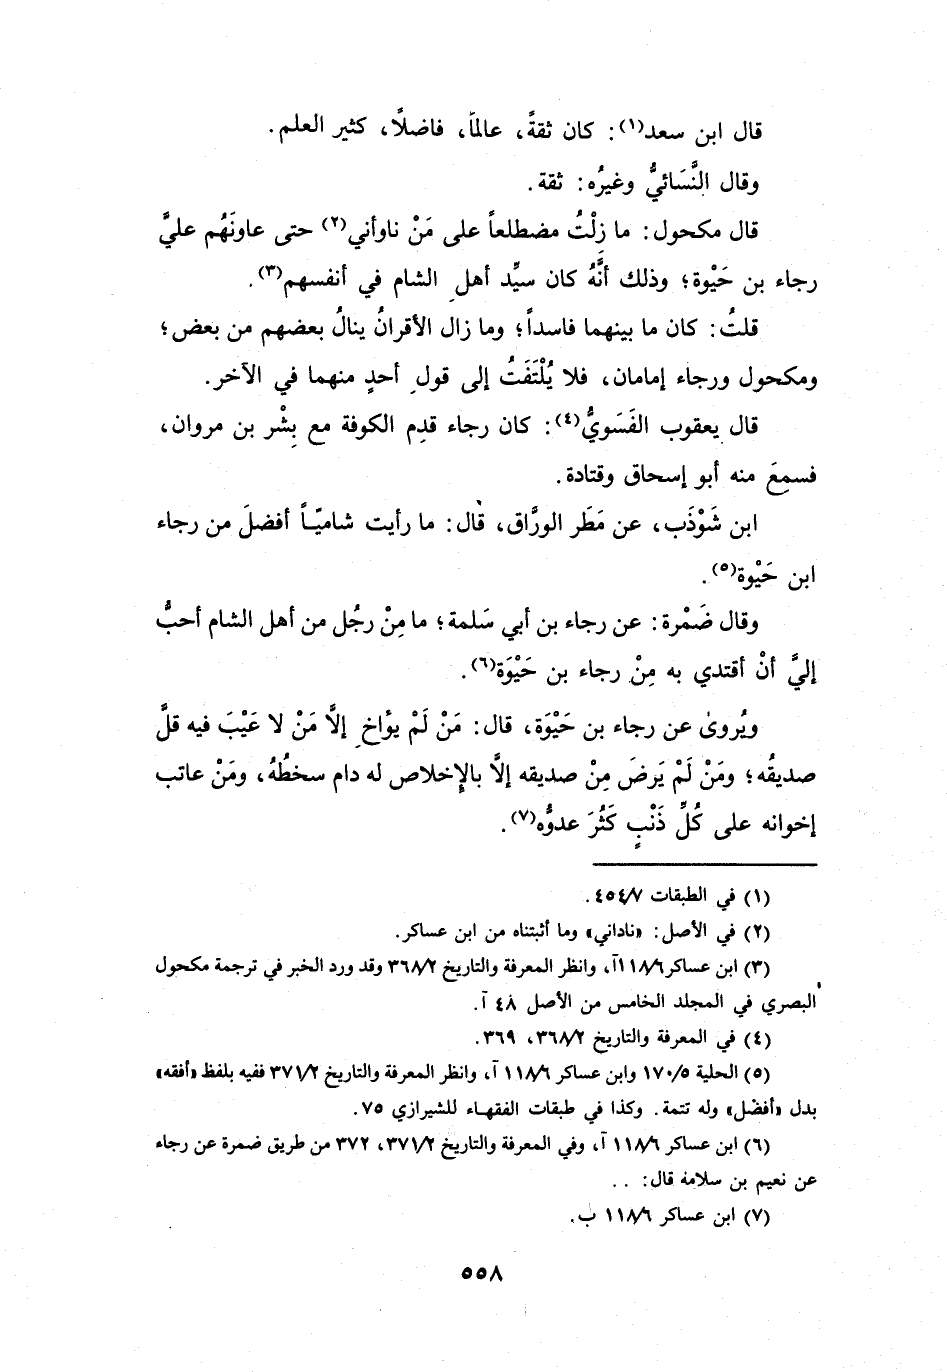 قال ابن سعد(١): كان ثقةً، عالماً، فاضلًا، كثير العلم.
وقال النَّسَائيُّ وغيرُه: ثقة.
قال مكحول: ما زِلْتُ مضطلعاً على مَنْ ناوأني(٢) حتى عاونَهُم عليَّ
رجاء بن حَيْوة؛ وذلك أنَّهُ كان سيِّد أهلِ الشام في أنفسهم(٣).
قلتُ: كان ما بينهما فاسداً؛ وما زال الأقرانُ ينالُ بعضهم من بعض؛
ومكحول ورجاء إمامان، فلا يُلْتَفَتُ إلى قولِ أحدٍ منهما في الآخر.
قال يعقوب الفَسَويُّ(٤): كان رجاء قدِم الكوفة مع بِشْر بن مروان،
فسمِعَ منه أبو إسحاق وقتادة.
ابن شَوْذَب، عن مَطَر الورَّاق، قال: ما رأيت شاميّاً أفضلَ من رجاء
ابن حَيْوة(٥).
وقال ضَمْرة: عن رجاء بن أبي سَلمة؛ ما مِنْ رجُل من أهل الشام أحبُّ
إليَّ أنْ أقتدي به مِنْ رجاء بن حَيْوَة(٦).
ويُروىٰ عن رجاء بن حَيْوَة، قال: مَنْ لَمْ يؤاخِ إلَّا مَنْ لا عَيْبَ فيه قلَّ
صديقُه؛ ومَنْ لَمْ يَرضَ مِنْ صديقه إلَّا بالإخلاص له دام سخطُهُ، ومَنْ عاتب
إخوانه على كُلِّ ذَنْبٍ كَثُرَ عدوُّه(٧).
(١) في الطبقات ٤٥٤/٧.
(٢) في الأصل: «ناداني» وما أثبتناه من ابن عساكر.
(٣) ابن عساكر ١١٨/٦آ، وانظر المعرفة والتاريخ ٣٦٨/٢ وقد ورد الخبر في ترجمة مكحول
البصري في المجلد الخامس من الأصل ٤٨ آ.
(٤) في المعرفة والتاريخ ٣٦٨/٢، ٣٦٩.
(٥) الحلية ١٧٠/٥ وابن عساكر ١١٨/٦ آ، وانظر المعرفة والتاريخ ٣٧١/٢ ففيه بلفظ «أفقه»
بدل «أفضل» وله تتمة. وكذا في طبقات الفقهاء للشيرازي ٧٥.
(٦) ابن عساكر ١١٨/٦ آ، وفي المعرفة والتاريخ ٣٧١/٢، ٣٧٢ من طريق ضمرة عن رجاء
عن نعيم بن سلامة قال: . .
(٧) ابن عساكر ١١٨/٦ ب.
٥٥٨